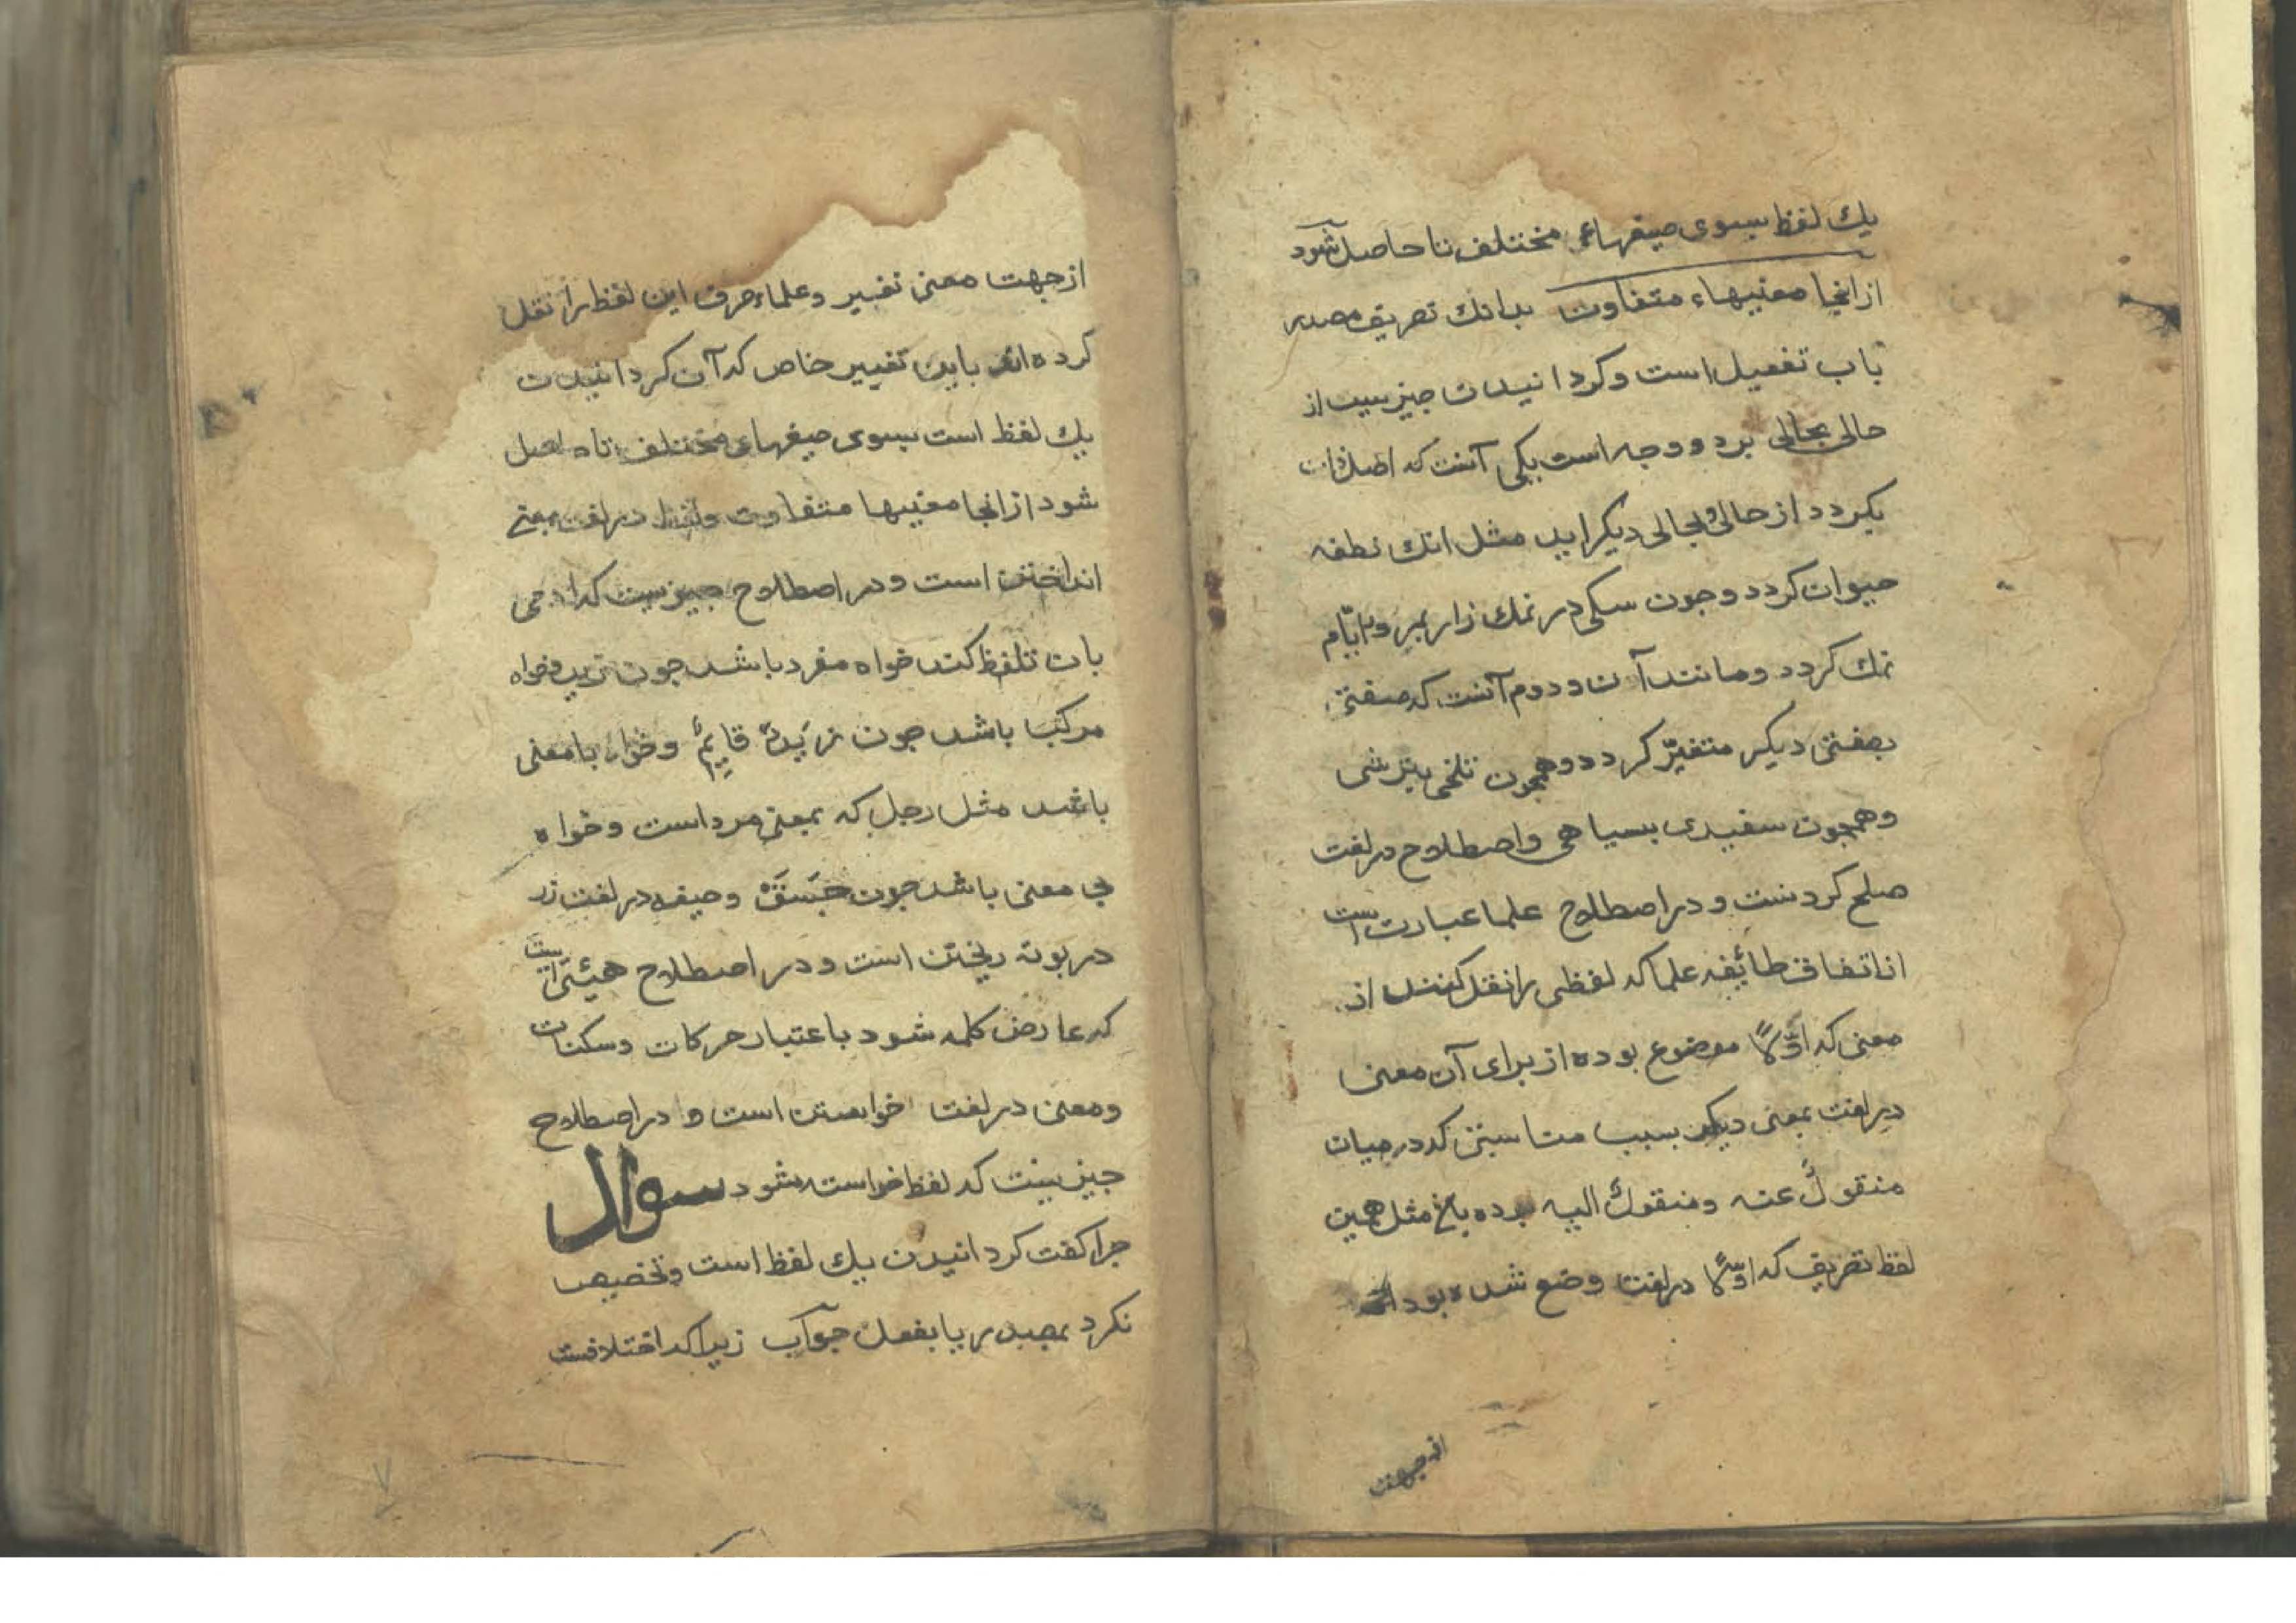 يك لفظ بسوى صيغهاء مختلف تا حاصل شود
از انجا معنيهاء متفاوت بدانك تصريف مصدر
باب تفعيل است و كردانيدن چيزيست از
حالى بحالى بر دو وجه است يكى آنست كه اصل ذات
بكردد از حالى و بحالى ديكر ايد مثل انك نطفه
حيوان كردد و جون سكى در نمك زار بمير و بايّام
نمك كردد و مانند آن و دوم آنست كه صفتى
بصفتى ديكر متغيّر كردد و همجون تلخى بترشى
و همجون سفيدى بسياهى و اصطلاح در لغت
صلح كردنست و در اصطلاح علما عبارت است
از اتفاق طائفه علما كه لفظى را نقل كنند از
معنى كه اوّلاً موضوع بوده از براى آن معنى
در لغت بمعنى ديكر بسبب مناسبتى كه در ميان
منقولٌ عنه و منقول اليه بوده باشد مثل همين
لفظ تصريف كه اوّلاً در لغت وضع شده بود
از جهت
از جهت معنى تغيير و علماء صرف اين لفظ را نقل
كرده اند باين تغيير خاص كه آن كردانيدن
يك لفظ است بسوى صيغهاى مختلف تا حاصل
شود از انجا معنيها متفاوت و لفظ در لغت بمعنى
انداختن است و در اصطلاح جيزيست كه ادمى
بان تلفظ كند خواه مفرد باشد جون زيد و خواه
مركب باشد جون زَيدٌ قايِمٌ و خواه با معنى
باشد مثل رجل كه بمعنى مرد است و خواه
بى معنى باشد جون جَسَقْ و صيغه در لغت زر
در بوته ريختن است و در اصطلاح هيئتى است
كه عارض كلمه شود باعتبار حركات و سكنات
و معنى در لغت خواستن است و در اصطلاح
جيزيست كه لفظ خواسته شود سوال
جرا كفت كردانيدن يك لفظ است و تخصيص
نكرد بمصدر يا بفعل جوآب زيرا كه اختلافست